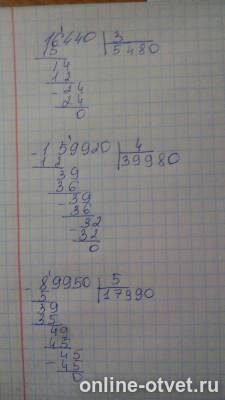 16440 | 3
15 | 5480
14
12
- 24
24
0
- 159920 | 4
12 | 39980
39
36
- 39
36
- 32
32
0
- 89950 | 5
5 | 17990
39
35
49
45
- 45
45
0
online-otvet.ru